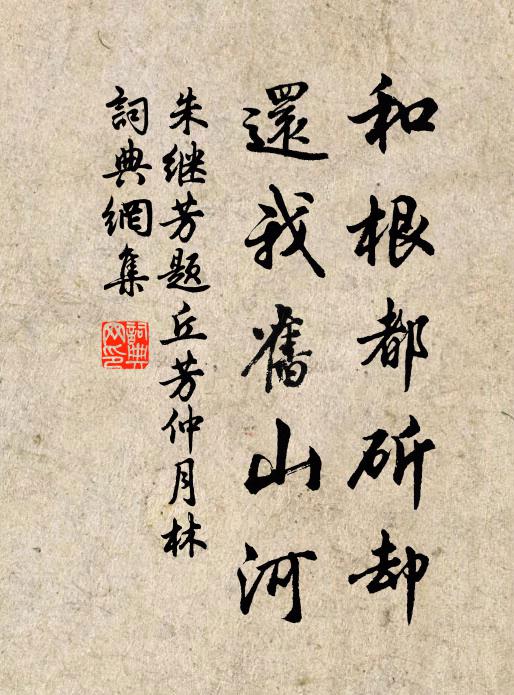 和根都斫却
還我舊山河
朱继芳题丘芳仲月林
詞典網集
詞典網印